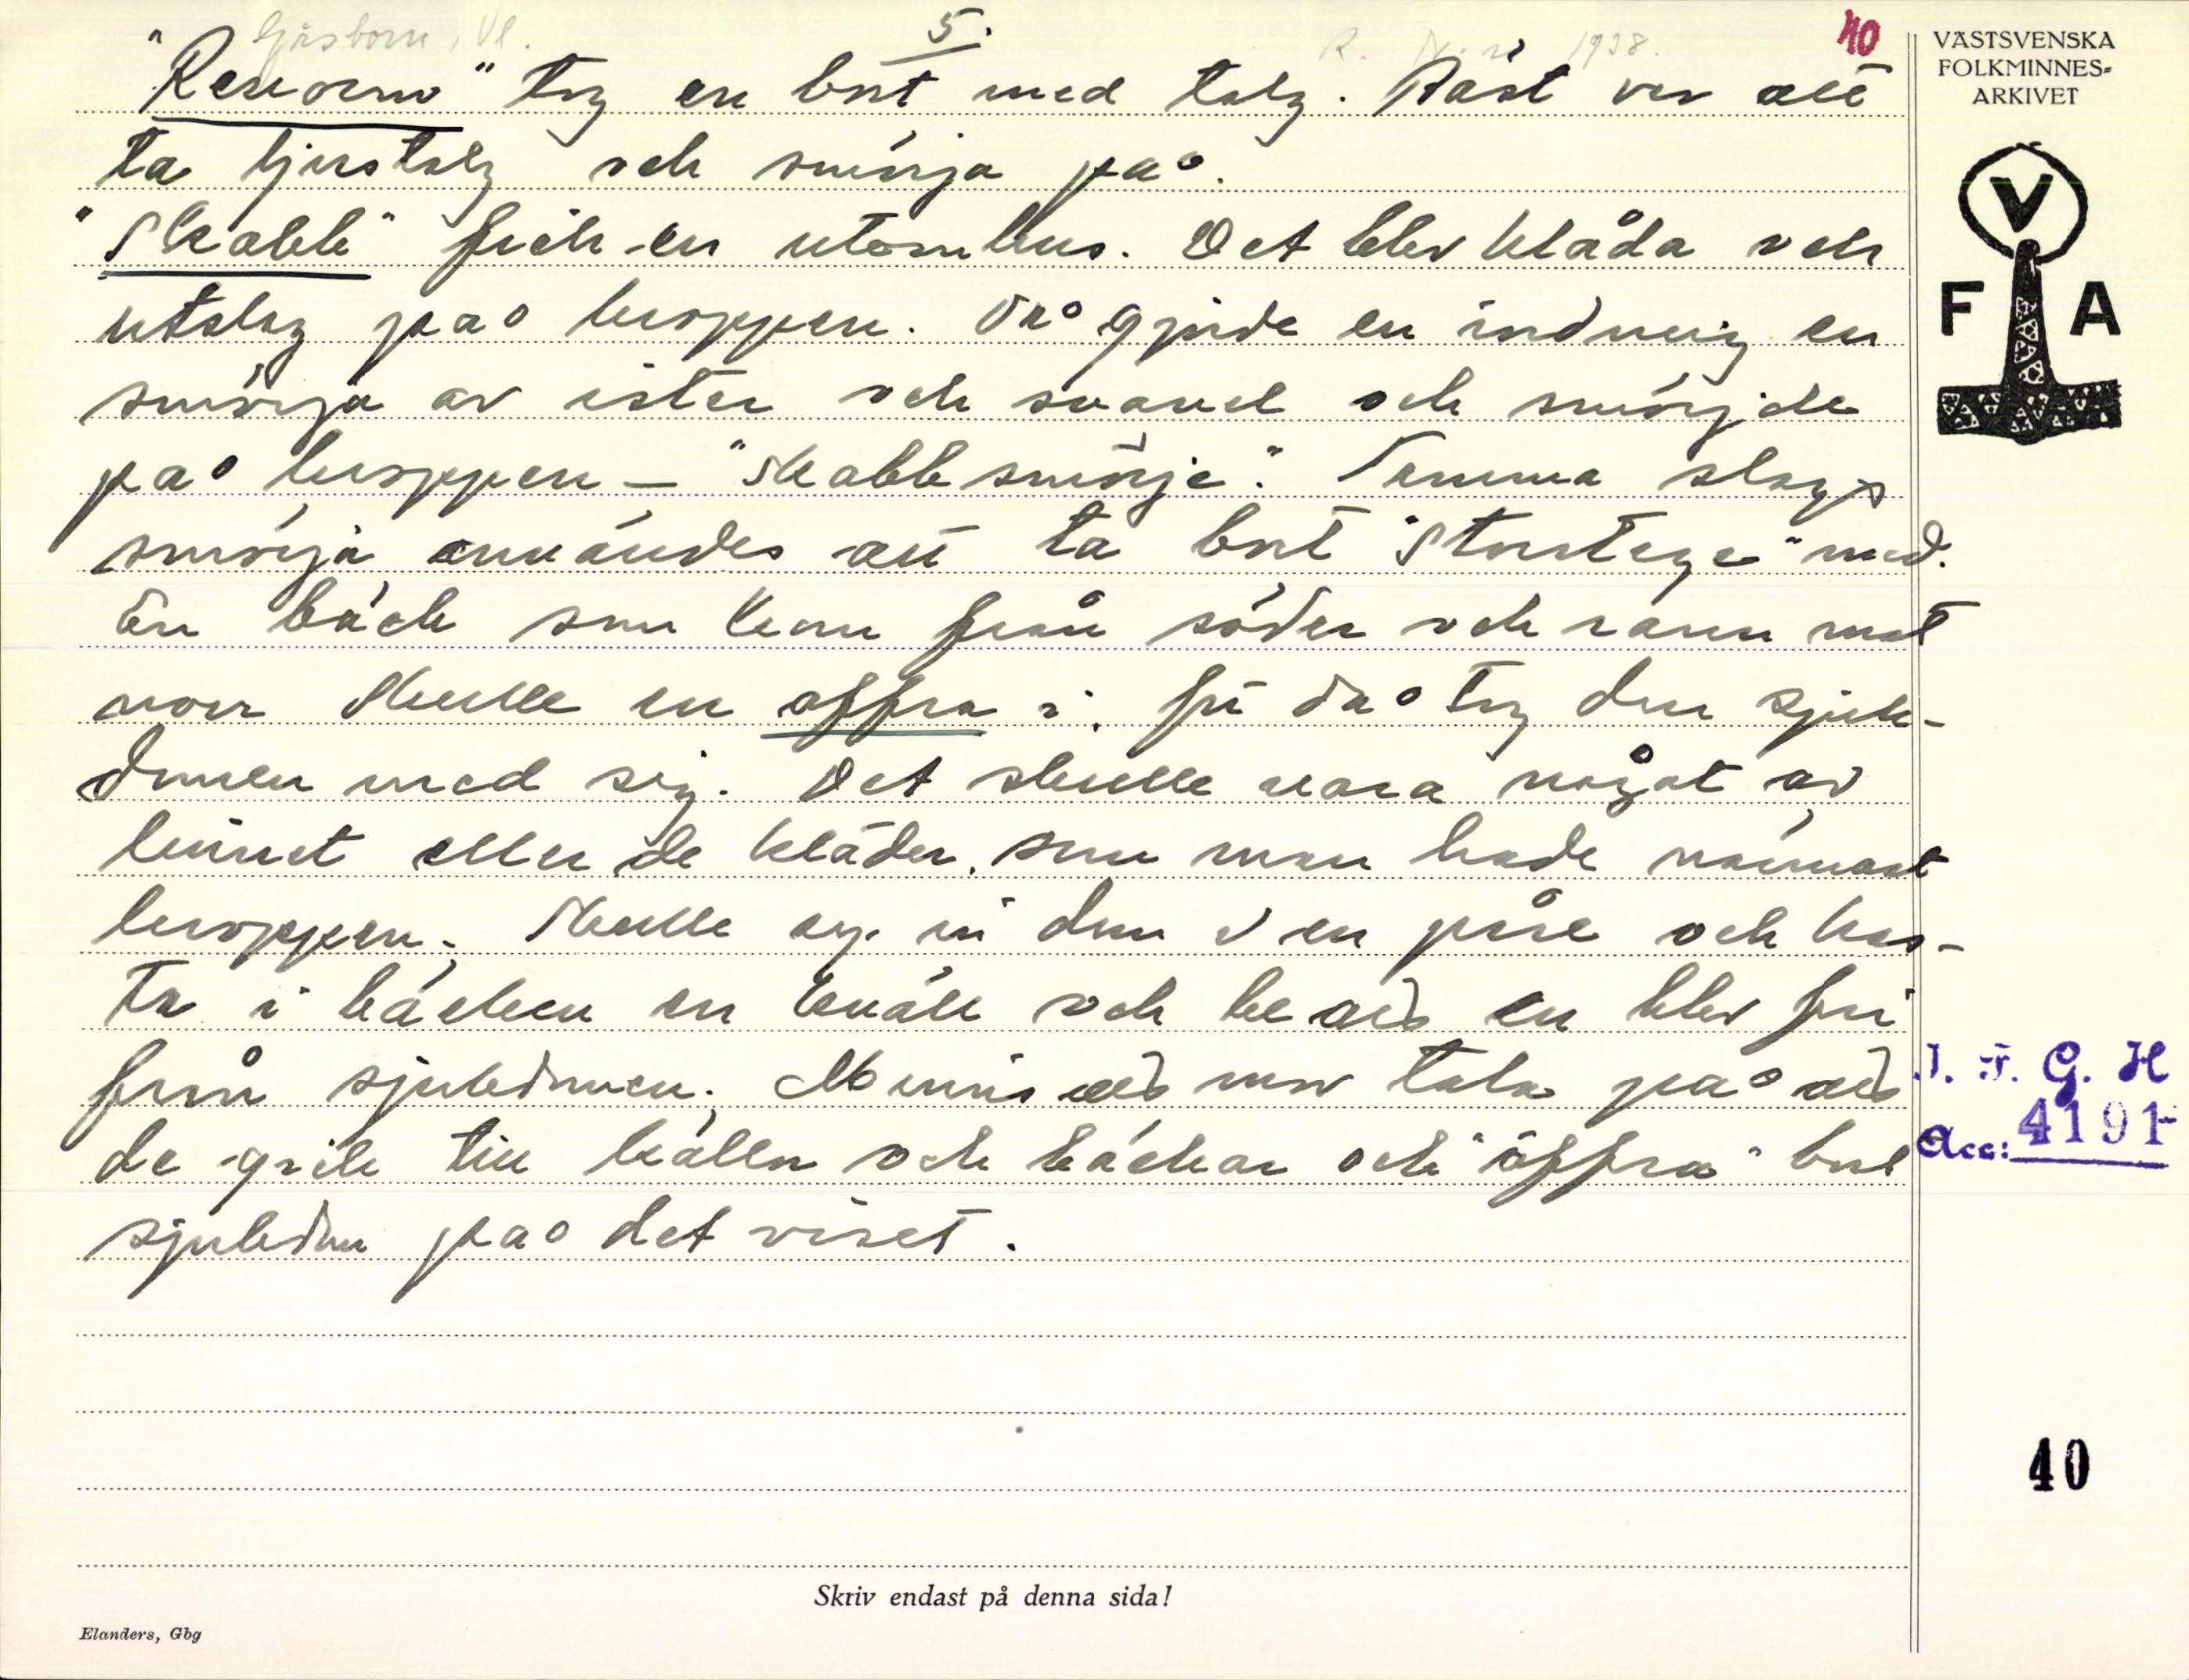 Gåsborn, Vl. 5. 1938. 40
"Reveorm" tog en bort med talg. Bäst var att
ta ljustalg och smörja på.
"Skabb" fick en utomhus. Det blev klåda och
utslag på kroppen. Då gjorde en indvärtes en
smörja av ister och svavel och smörjde
på kroppen – "Skabbsmörje". Samma slags
smörja användes att ta bort "Stortege" med.
En bäck som kom från söder och rann mot
norr skulle en offra i, för då tog den sjuk-
domen med sig. Det skulle vara något av
linnet eller de kläder, som man hade närmast
kroppen. Skulle sy in dem i en påse och kas-
ta i bäcken en kväll och be att en blev fri
från sjukdomen. Minns att mor tala på att
de gick till källor och bäckar och "offra" bort
sjukdom på det viset.
VÄSTSVENSKA
FOLKMINNES-
ARKIVET
V
F A
I. F. G. H
Acc: 4191
40
Skriv endast på denna sida!
Elanders, Gbg